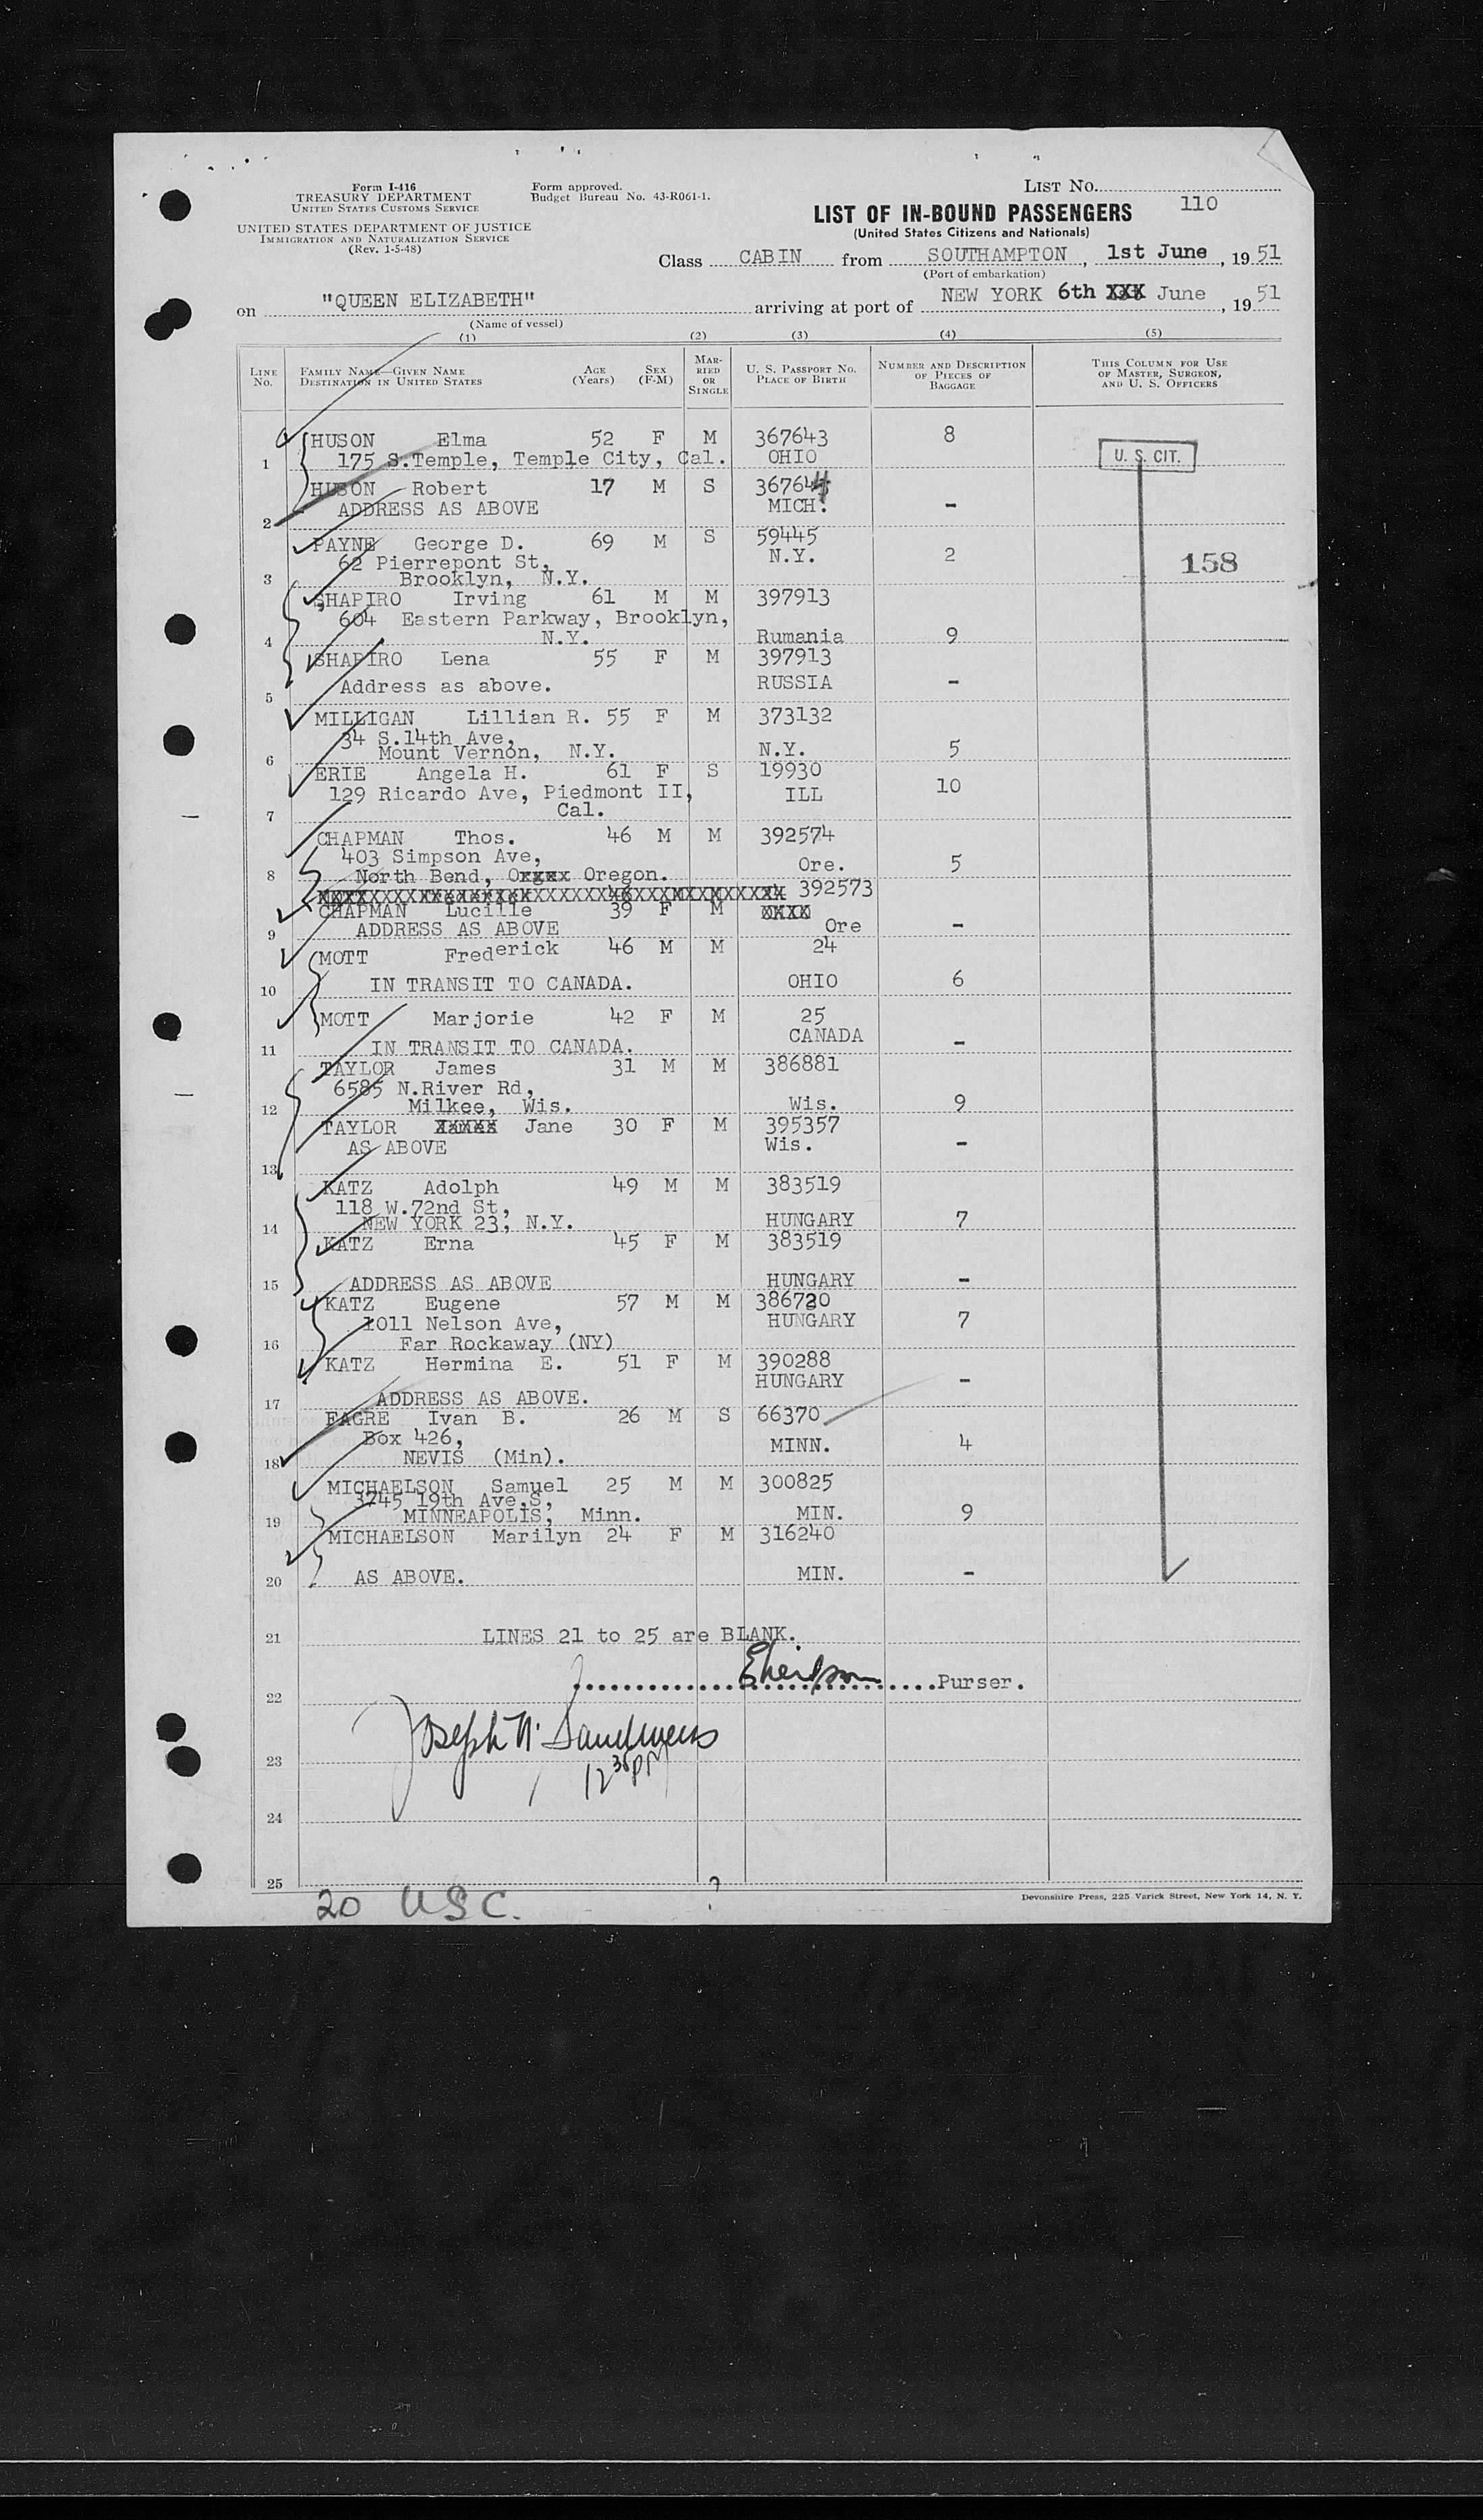 Form I-416
TREASURY DEPARTMENT
UNITED STATES CUSTOMS SERVICE
UNITED STATES DEPARTMENT OF JUSTICE
IMMIGRATION AND NATURALIZATION SERVICE
(Rev. 1-5-48)
Form approved.
Budget Bureau No. 43-R061-1.
LIST NO.
110
LIST OF IN-BOUND PASSENGERS
(United States Citizens and Nationals)
Class CABIN from SOUTHAMPTON, 1st June, 1951
(Port of embarkation)
on "QUEEN ELIZABETH" arriving at port of NEW YORK 6th XXX June, 1951
(Name of vessel)
(1) (2) (3) (4) (5)
LINE NO. FAMILY NAME—GIVEN NAME DESTINATION IN UNITED STATES AGE (Years) SEX (F-M) MARRIED OR SINGLE U. S. PASSPORT NO. PLACE OF BIRTH NUMBER AND DESCRIPTION OF PIECES OF BAGGAGE THIS COLUMN FOR USE OF MASTER, SURGEON, AND U. S. OFFICERS
HUSON Elma 52 F M 367643 8
1 175 S.Temple, Temple City, Cal. OHIO U. S. CIT.
HUSON Robert 17 M S 367644
2 ADDRESS AS ABOVE MICH. -
PAYNE George D. 69 M S 59445
62 Pierrepont St, N.Y. 2 158
3 Brooklyn, N.Y.
SHAPIRO Irving 61 M M 397913
604 Eastern Parkway, Brooklyn,
4 N.Y. Rumania 9
SHAPIRO Lena 55 F M 397913
5 Address as above. RUSSIA -
MILLIGAN Lillian R. 55 F M 373132
34 S.14th Ave,
6 Mount Vernon, N.Y. N.Y. 5
ERIE Angela H. 61 F S 19930
129 Ricardo Ave, Piedmont II, ILL 10
7 Cal.
CHAPMAN Thos. 46 M M 392574
403 Simpson Ave, Ore. 5
8 North Bend, Oxxxx Oregon.
392573
CHAPMAN Lucille 39 F M XXXX
9 ADDRESS AS ABOVE Ore -
MOTT Frederick 46 M M 24
10 IN TRANSIT TO CANADA. OHIO 6
MOTT Marjorie 42 F M 25
CANADA
11 IN TRANSIT TO CANADA. -
TAYLOR James 31 M M 386881
6585 N.River Rd,
12 Milkee, Wis. Wis. 9
TAYLOR XXXXX Jane 30 F M 395357
13 AS ABOVE Wis. -
KATZ Adolph 49 M M 383519
118 W.72nd St,
14 NEW YORK 23, N.Y. HUNGARY 7
KATZ Erna 45 F M 383519
15 ADDRESS AS ABOVE HUNGARY -
KATZ Eugene 57 M M 386720
1011 Nelson Ave, HUNGARY 7
16 Far Rockaway (NY)
KATZ Hermina E. 51 F M 390288
HUNGARY -
17 ADDRESS AS ABOVE.
FAGRE Ivan B. 26 M S 66370
Box 426, MINN. 4
18 NEVIS (Min).
MICHAELSON Samuel 25 M M 300825
3745 19th Ave.S,
19 MINNEAPOLIS, Minn. MIN. 9
MICHAELSON Marilyn 24 F M 316240
20 AS ABOVE. MIN. -
21 LINES 21 to 25 are BLANK.
Purser.
22
Joseph
23
12 30 PM
24
25
Devonshire Press, 225 Varick Street, New York 14, N. Y.
20 USC.